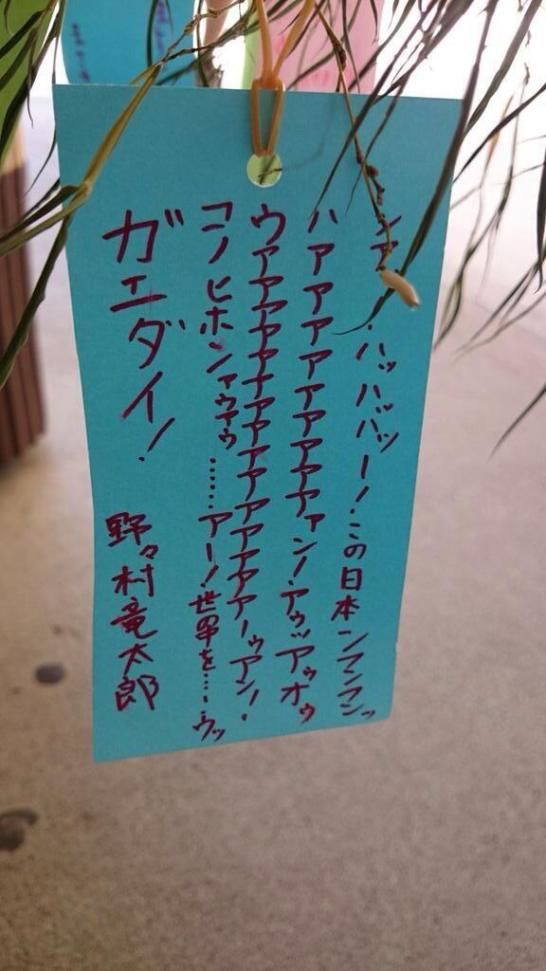 ンア！ハッハバッー！この日本ンフンフンッ
ハアアアアアアアアアアァン！アゥッアゥオゥ
ウアアアアアアアアアアアアアアーゥアン！
コノヒホンァゥァゥ……アー！世界を……ウッ
ガエダイ！
野々村竜太郎